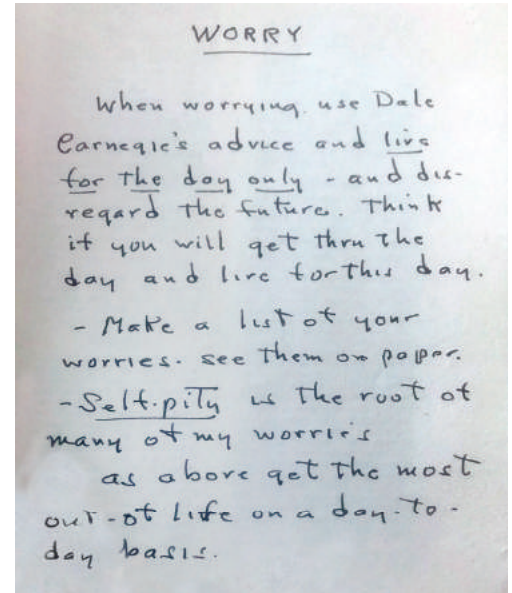 WORRY
When worrying, use Dale
Carnegie's advice and live
for the day only - and dis-
regard the future. Think
if you will get thru the
day and live for this day.
- Make a list of your
worries. see them on paper.
- Self-pity is the root of
many of my worries
as above get the most
out-of life on a day-to-
day basis.